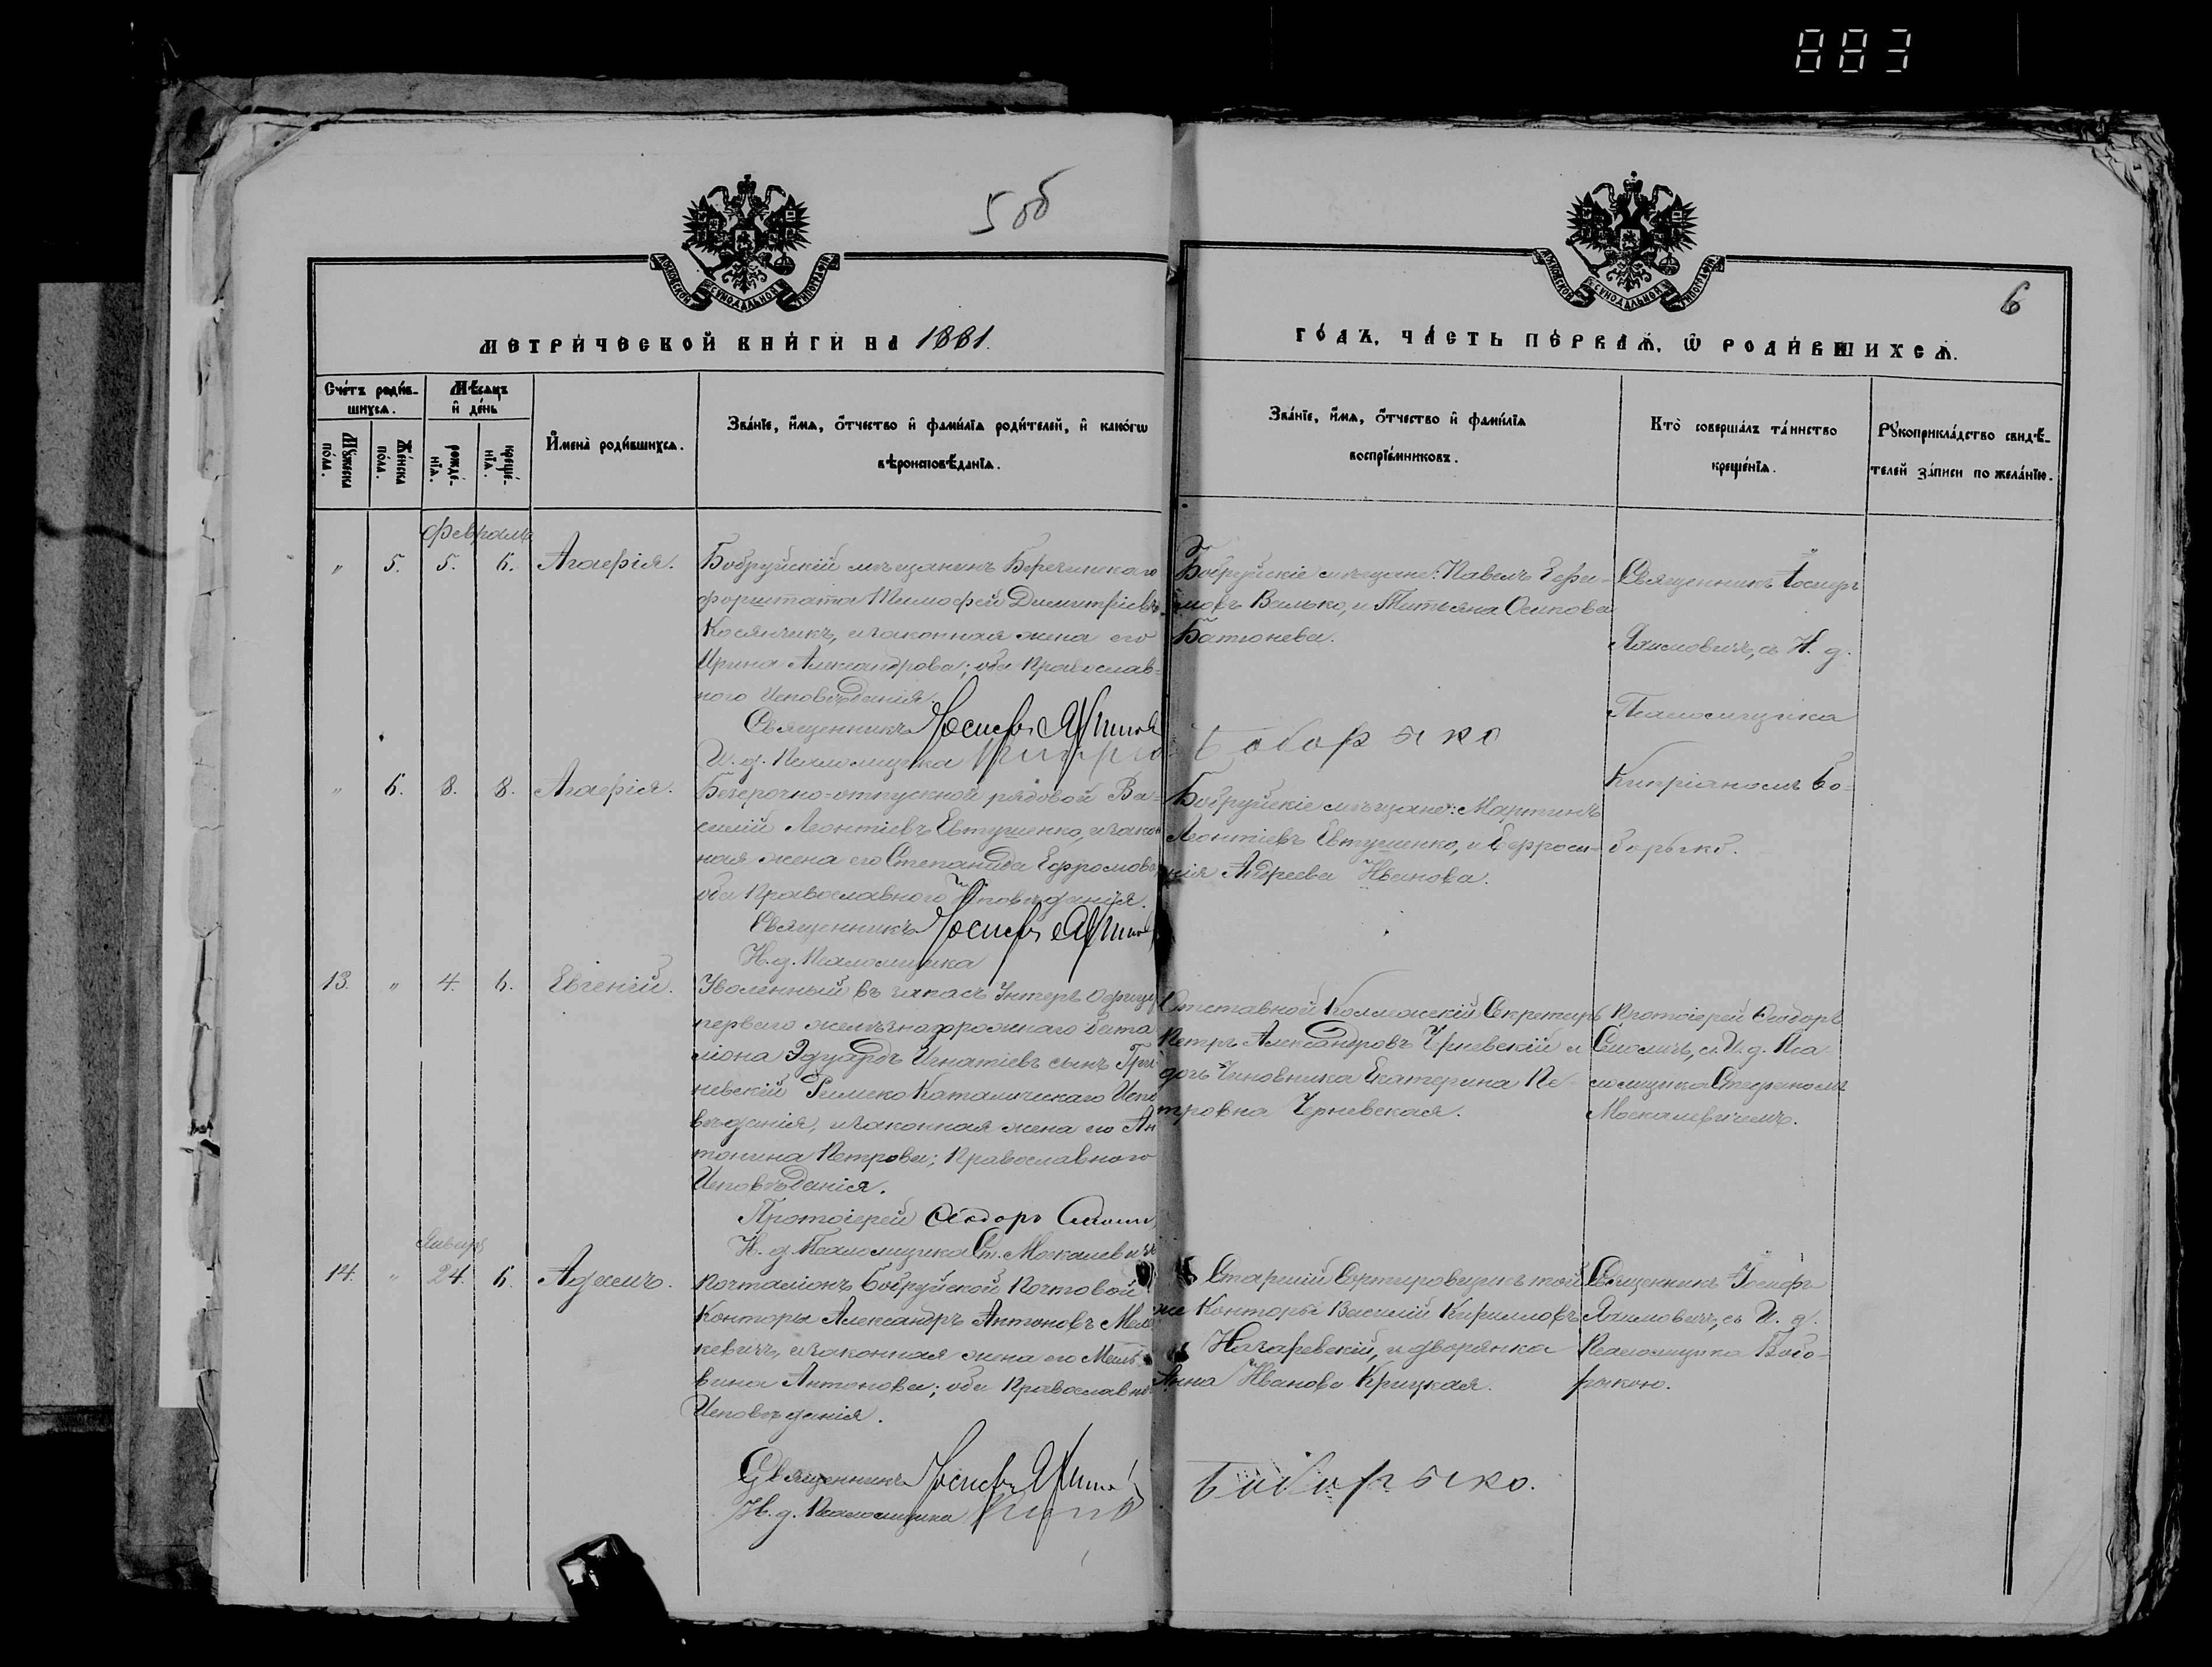 883
5 об
6
МОСКОВСКОЙ СѴНОДАЛЬНОЙ ТИПОГРАФІИ
МОСКОВСКОЙ СѴНОДАЛЬНОЙ ТИПОГРАФІИ
МЕТРИ́ЧЕСКОЙ КНИ́ГИ НА 1881.
ГО́ДЪ, ЧА́СТЬ ПЕ́РВАѦ, Ѽ РОДИ́ВШИХСѦ.
Сче́тъ роди́в-
шихсѧ.
Мѣ́сѧцъ
и҆ де́нь
Мꙋ́жеска
по́ла.
Же́нска
по́ла.
рожде́-
нїѧ.
креще́-
нїѧ.
И҆мена̀ роди́вшихсѧ.
Зва́нїе, и҆́мѧ, ѻ҆́тчество и҆ фами́лїѧ роди́телей, и҆ како́гѡ
вѣроисповѣ́данїѧ.
Зва́нїе, и҆́мѧ, ѻ҆́тчество и҆ фами́лїѧ
воспрїе́мниковъ.
Кто̀ соверша́лъ та́инство
креще́нїѧ.
Рꙋкоприкла́дство свидѣ́-
телей за́писи по жела́нїю.
Февраля
" 5. 5. 6. Агафія.
Бобруйскій мѣщанинъ Березинскаго
форштата Тимофей Димитріевъ
Косянчикъ, и законная жена его
Ирина Александрова; оба Православ-
ного Исповѣданія.
Священникъ Іосифъ
И. д. Псаломщика
Бобруйскіе мѣщане: Павелъ Ефи-
мовъ Валько, и Татьяна Осипова
Батюнева.
Боборыко
Священникъ Іосифъ
Якимовичъ, съ И. д.
Псаломщика
Кипріаномъ Бо-
борыко.
" 6. 8. 8. Агафія.
Безсрочно-отпускной рядовой Ва-
силій Леонтіевъ Евтушенко, и закон
ная жена его Степанида Ефромова,
оба Православного Исповѣданія.
Священникъ Іосифъ
И. д. Псаломщика
Бобруйскіе мѣщане: Мартинъ
Леонтіевъ Евтушенко, и Ефроси-
нія Андреева Иванова.
13. " 4. 6. Евгеній.
Уволенный въ запасъ Унтеръ Офице
перваго желѣзнодорожнаго бата
ліона Эдуардъ Игнатіевъ сынъ
невскій Римско Католическаго Испо
вѣданія, и законная жена его Ан
тонина Петрова; Православного
Исповѣданія.
Протоіерей Ѳеодоръ
И. д. Псаломщика Ст. Москалевичъ
Отставной Коллежскій Секретарь
Петръ Александровъ Черневскій и
дочь Чиновника Екатерина Пе-
тровна Черневская.
Протоіерей Ѳеодоръ
Смоличъ, съ И. д. Пса-
ломщика Стефаномъ
Москалевичемъ.
Январь
14. " 24. 6. Адамъ.
Почталіонъ Бобруйской Почтовой
Конторы Александръ Антоновъ
кевичъ, и законная жена его
вина Антонова; оба Православного
Исповѣданія.
Священникъ Іосифъ
И. д. Псаломщика
Старшій Сортировщикъ той
же Конторы Василій Кирилловъ
Назаревскій, и дворянка
Анна Иванова Крицкая.
Боборыко.
Священникъ Іосифъ
Якимовичъ, съ И. д.
Псаломщика Бобо-
рыкою.